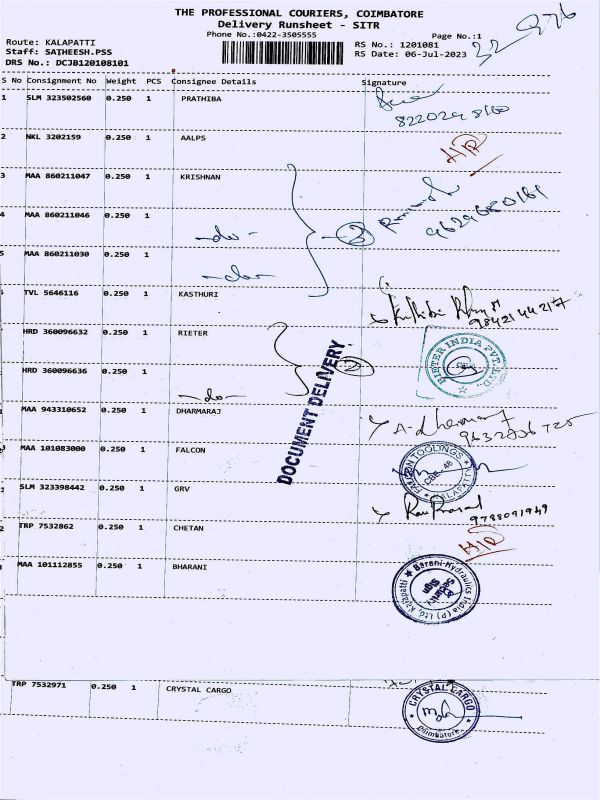 THE PROFESSIONAL COURIERS, COIMBATORE
Delivery Runsheet - SITR
Phone No.:0422-3505555
Page No.:1
Route: KALAPATTI
Staff: SATHEESH.PSS
DRS No.: DCJB120108101
RS No.: 1201081
RS Date: 06-Jul-2023
S No Consignment No Weight PCS Consignee Details Signature
1 SLM 323502560 0.250 1 PRATHIBA
8220298160
2 NKL 3202159 0.250 1 AALPS
3 MAA 860211047 0.250 1 KRISHNAN
4 MAA 860211046 0.250 1 -do-
9629680161
5 MAA 860211030 0.250 1 -do-
TVL 5646116 0.250 1 KASTHURI
9842144217
HRD 360096632 0.250 1 RIETER
RIETER INDIA PVT. LTD.
HRD 360096636 0.250 1 -do-
DOCUMENT DELIVERY
MAA 943310652 0.250 1 DHARMARAJ
MAA 101083000 0.250 1 FALCON
FALCON TOOLINGS
KALAPATTI
SLM 323398442 0.250 1 GRV
9788091949
2 TRP 7532862 0.250 1 CHETAN
MAA 101112855 0.250 1 BHARANI
Barani-Hydraulics India (P) Ltd, Kalapatti
Security Sign
TRP 7532971 0.250 1 CRYSTAL CARGO
CRYSTAL CARGO
Coimbatore